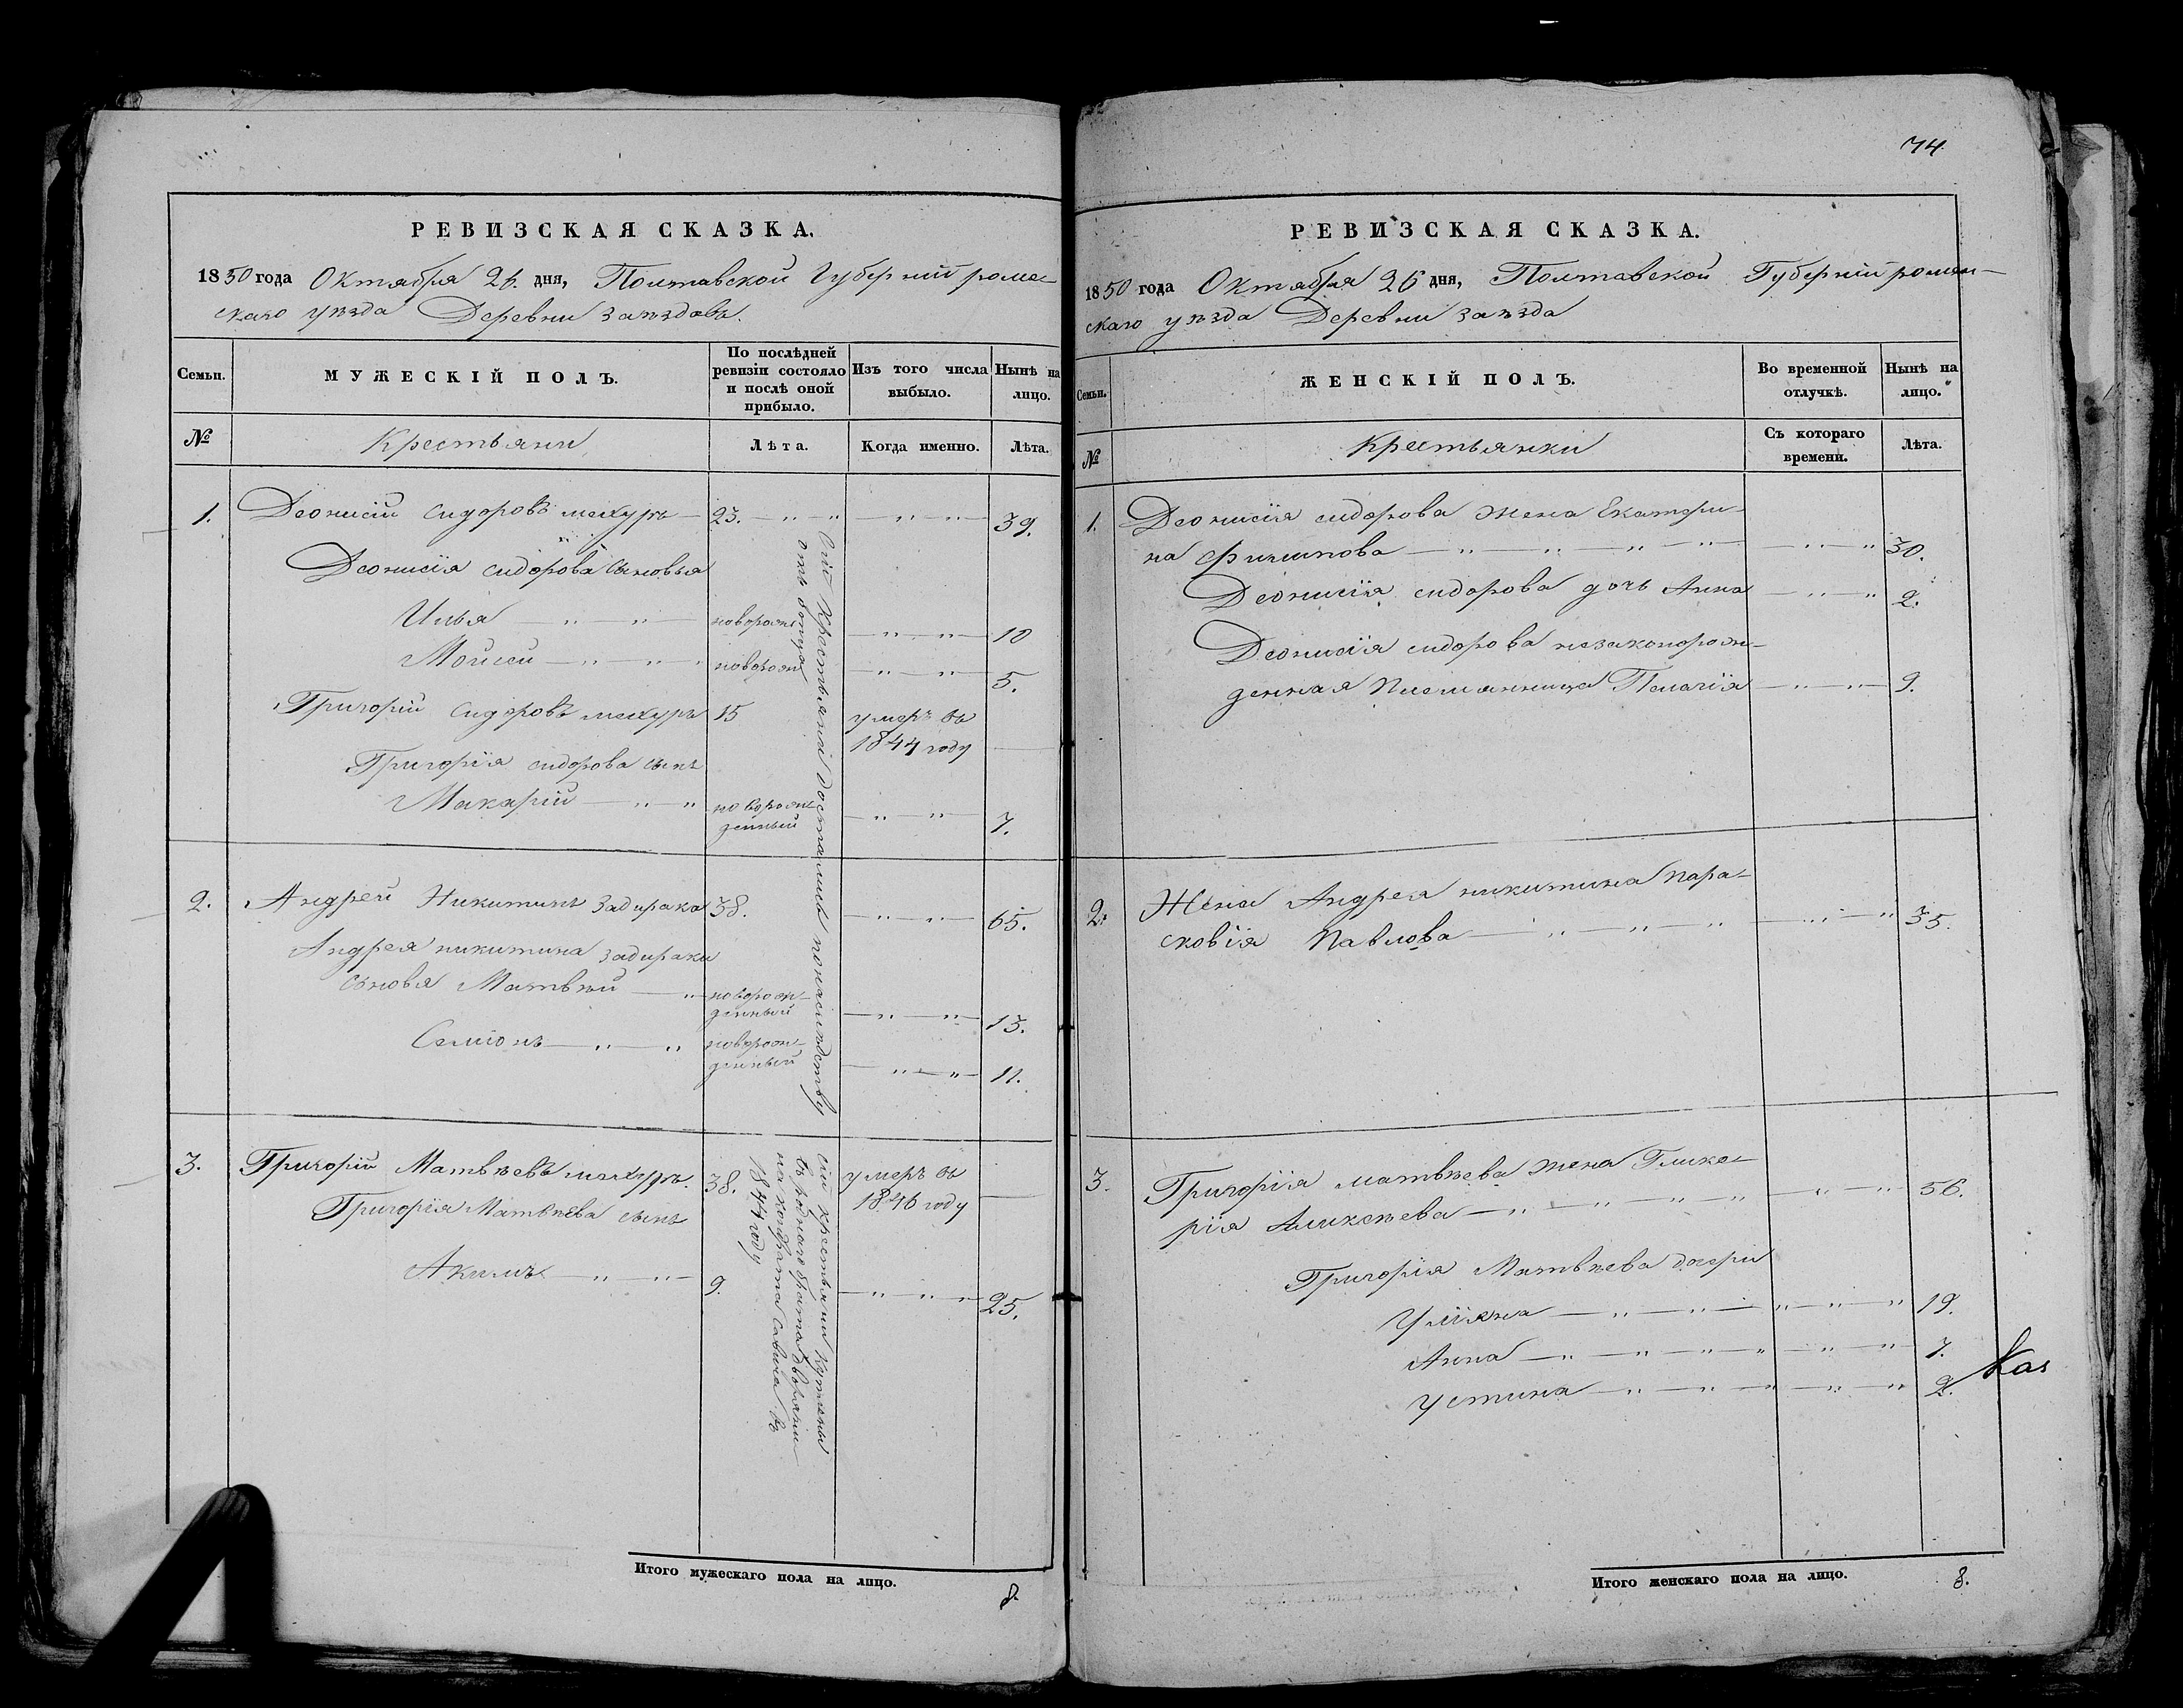 РЕВИЗСКАЯ СКАЗКА.
1850 года Октября 26 дня, Полтавской Губерній роме-
скаго уѣзда Деревни Заѣздовъ.
Семьи.
МУЖЕСКІЙ ПОЛЪ.
По послѣдней
ревизіи состояло
и послѣ оной
прибыло.
Изъ того числа
выбыло.
Нынѣ на
лицо.
№
Крестьяни
Лѣта.
Когда именно.
Лѣта.
1. Деонисій Сидоровъ мехуръ 23. 39.
Деонисія сидорова сыновья
Илья новорож 10
Мойсей новорож 5.
Григорій Сидоровъ мехуръ 15 умеръ въ
1844 году
Григорія сидорова сынъ
Макарій новорож-
денный 7.
Сніе Крестьяни достались понаслѣдству
отъ отца
2. Андрей Никитинъ Задирака 38. 65.
Андрея никитина задираки
сыновя Матвѣй новорож-
денный 13.
Семіонъ новорож-
денный 11.
3. Григорій Матвѣевъ мехуръ. 38. умеръ въ
1846 году
Григорія Матвѣева сынъ
Акимъ 9. 25.
сіи крестьянии куплены
въ роднаго брата дворяни-
на кондрата Савича въ
1844 году
Итого мужескаго пола на лицо.
8.
74
РЕВИЗСКАЯ СКАЗКА.
1850 года Октября 26 дня, Полтавской Губерніи ромен-
скаго уѣзда Деревни заѣзда
Семьи.
ЖЕНСКІЙ ПОЛЪ.
Во временной
отлучкѣ.
Нынѣ на
лицо.
№
Крестьянки
Съ котораго
времени.
Лѣта.
1. Деонисія сидорова жена Екатери-
на Филипова 30.
Деонисія сидорова дочь Анна 2.
Деонисія сидорова незаконорож-
денная племянница Пелагія 9.
2. Жена Андрея никитина Пара-
сковія Павлова 35.
3. Григорія матвѣева жена Глике-
рія Аликсѣева 56.
Григорія Матвѣева дочери
Уліяна 19.
Анна 7.
Устина 2.
Итого женскаго пола на лицо.
8.